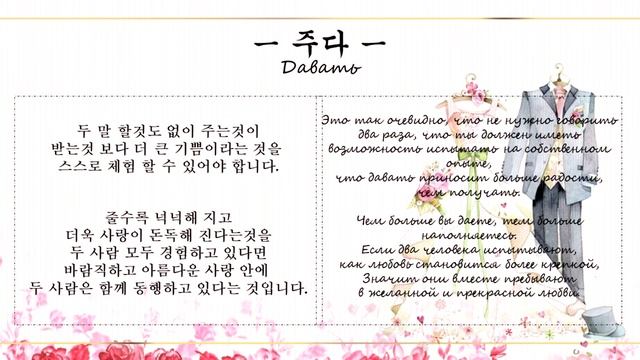 – 주다 –
Давать
두 말 할것도 없이 주는것이
받는것 보다 더 큰 기쁨이라는 것을
스스로 체험 할 수 있어야 합니다.
줄수록 넉넉해 지고
더욱 사랑이 돈독해 진다는것을
두 사람 모두 경험하고 있다면
바람직하고 아름다운 사랑 안에
두 사람은 함께 동행하고 있다는 것입니다.
Это так очевидно, что не нужно говорить
два раза, что ты должен иметь
возможность испытать на собственном
опыте,
что давать приносит больше радости,
чем получать.
Чем больше вы даете, тем больше
наполняетесь.
Если два человека испытывают,
как любовь становится более крепкой,
Значит они вместе пребывают
в желанной и прекрасной любви.